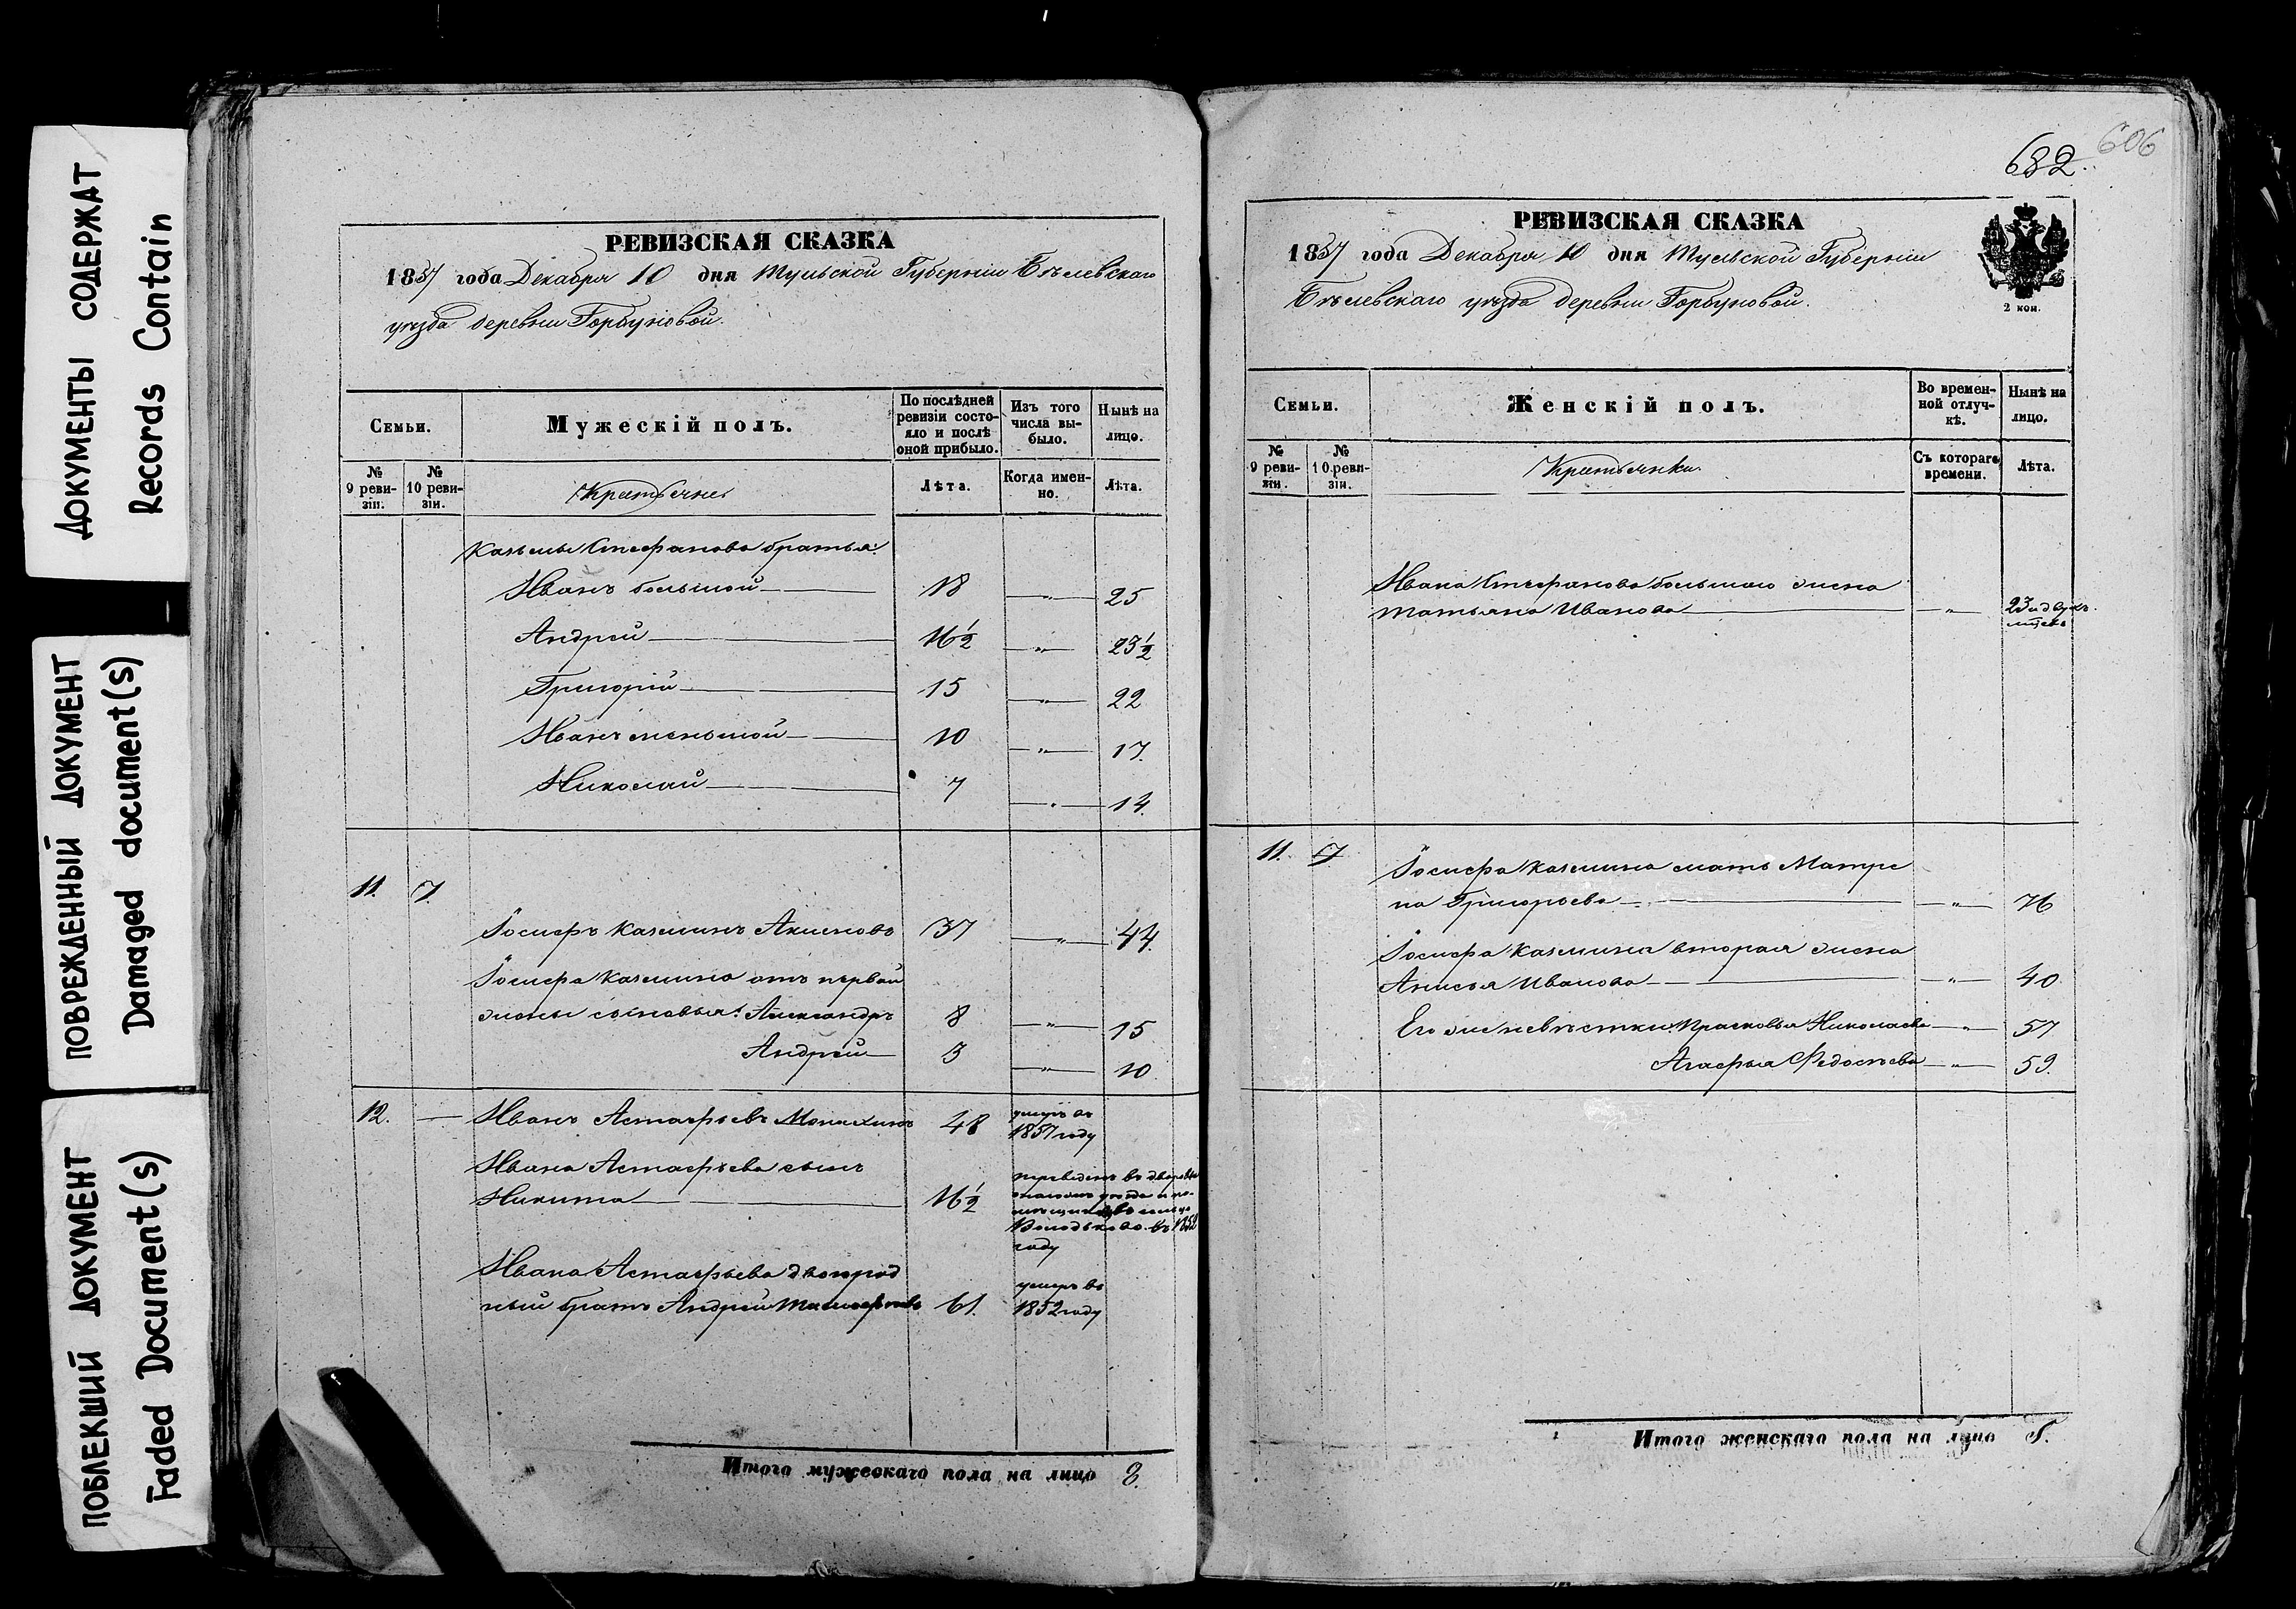 ДОКУМЕНТЫ СОДЕРЖАТ
Records Contain
ПОВРЕЖДЕННЫЙ ДОКУМЕНТ
Damaged document(s)
ПОБЛЕКШИЙ ДОКУМЕНТ
Faded Document(s)
РЕВИЗСКАЯ СКАЗКА
1857 года Декабря 10 дня Тульской Губернии Бѣлевскаго
уѣзда деревни Горбуновой.
Семьи.
Мужескій полъ.
По послѣдней ревизіи состояло и послѣ оной прибыло.
Изъ того числа выбыло.
Нынѣ на лицо.
№ 9 ревизіи.
№ 10 ревизіи.
Крестьяне
Лѣта.
Когда именно.
Лѣта.
Казьмы Стефанова братья:
Иванъ большой 18 " 25
Андрей 16½ " 23½
Григорій 15 " 22
Иванъ меньшой 10 " 17.
Николай 7 " 14.
11. 7.
Іосифъ Казминъ Акимовъ 37 " 44.
Іосифа Казмина отъ первой
жены сыновья: Александръ 8 " 15
Андрей 3 " 10
12. Иванъ Астафьевъ 48 умеръ въ
1857 году
Ивана Астафьева сынъ
Никита 16½ переведенъ въ
году
Ивана Астафьева двоюрод
ный братъ Андрей 61. умеръ въ
1852 году
Итого мужескаго пола на лицо 8.
682.
606
РЕВИЗСКАЯ СКАЗКА
1857 года Декабря 10 дня Тульской Губерніи
Бѣлевскаго уѣзда деревни Горбуновой.
2 коп.
Семьи.
Женскій полъ.
Во временной отлучкѣ.
Нынѣ на лицо.
№ 9 ревизіи.
№ 10 ревизіи.
Крестьянки.
Съ котораго времени.
Лѣта.
Ивана Стефанова большаго жена
Татьяна Иванова " 23
11. 7
Іосифа Казмина мать Матре
на Григорьева " 76
Іосифа Казмина вторая жена
Анисья Иванова " 40
Его же невѣстки: Прасковья Николаева " 57
Агафья Федосѣева " 59.
Итого женскаго пола на лицо 5.